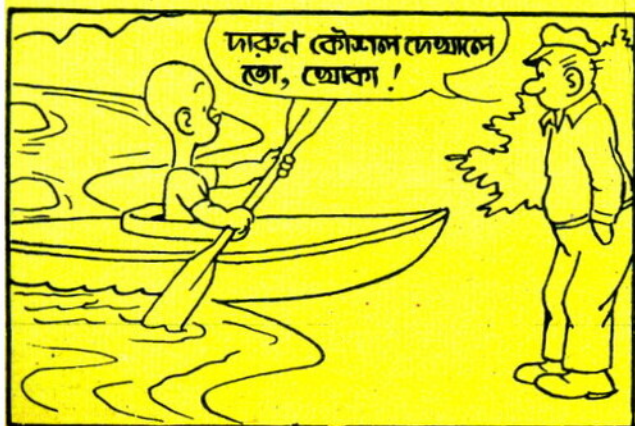 দারুণ কৌশল দেখালে
তো, খোকা !